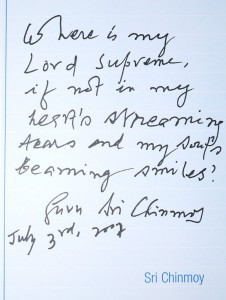 Where is my
Lord Supreme,
if not in my
heart's streaming
tears and my soul's
beaming smiles?
Guru Sri Chinmoy
July 3rd, 2007
Sri Chinmoy